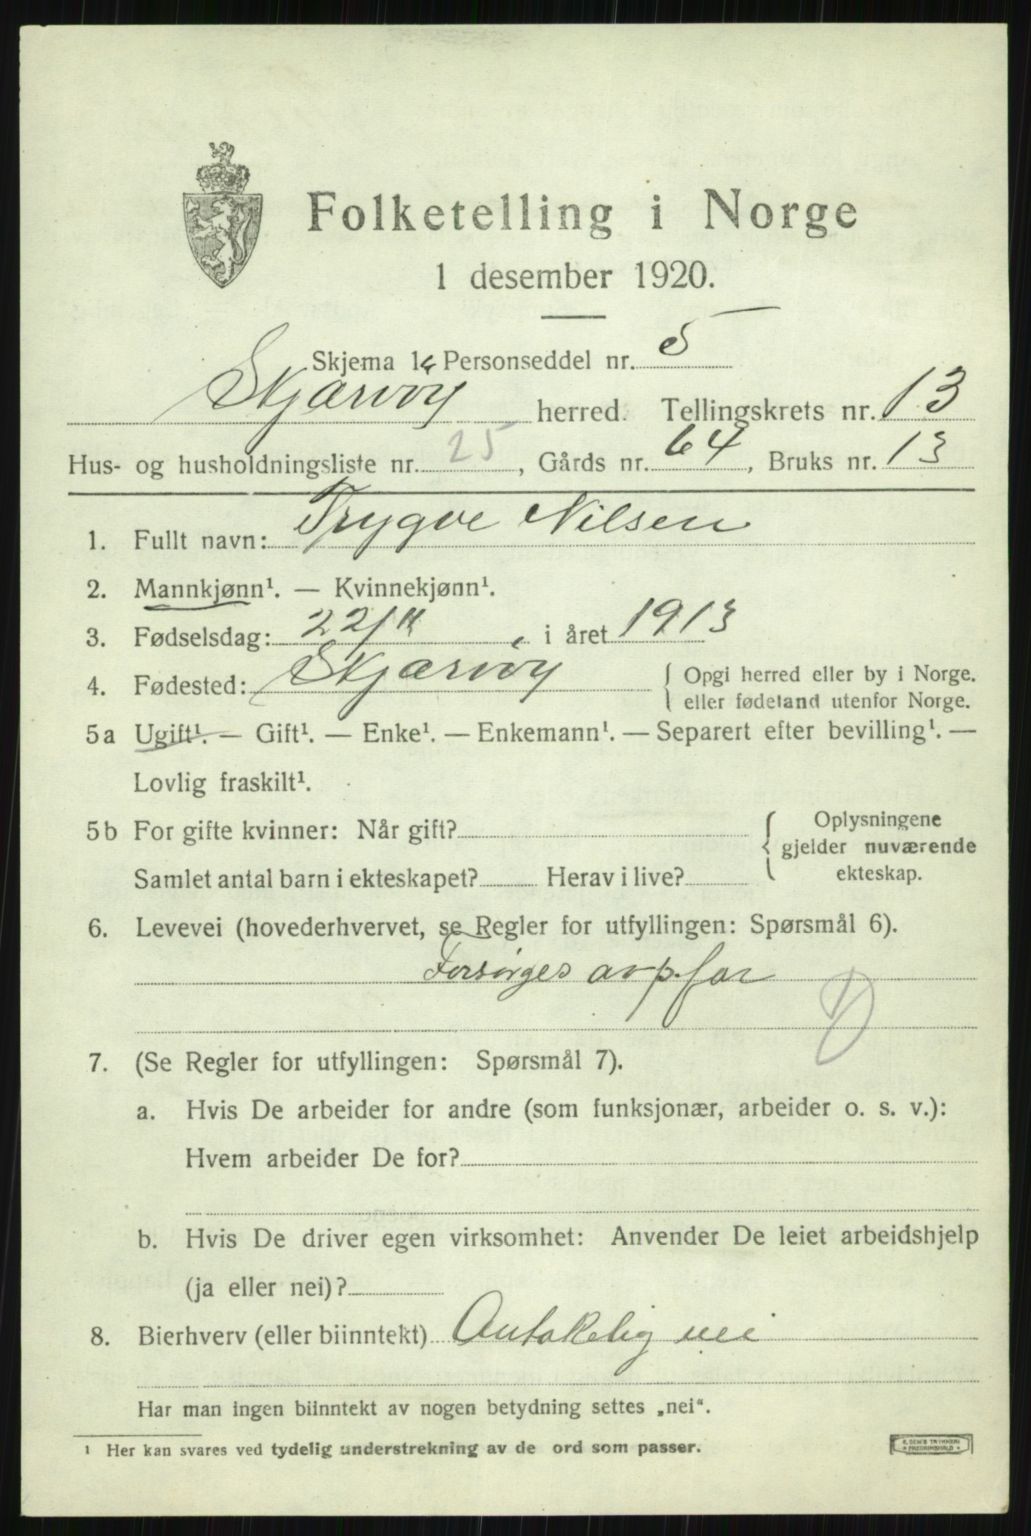 Folketelling i Norge
1 desember 1920.
Skjema 1. Personseddel nr. 5
Skjærvøy herred. Tellingskrets nr. 13
Hus- og husholdningsliste nr. 25, Gårds nr. 64, Bruks nr. 13
1. Fullt navn: Trygve Nilsen
2. Mannkjønn¹. — Kvinnekjønn¹.
3. Fødselsdag: i året 1913
4. Fødested: Skjærvøy { Opgi herred eller by i Norge.
eller fødeland utenfor Norge.
5a Ugift¹. — Gift¹. — Enke¹. — Enkemann¹. — Separert efter bevilling¹. —
Lovlig fraskilt¹.
5b For gifte kvinner: Når gift? { Oplysningene
gjelder nuværende
ekteskap.
Samlet antal barn i ekteskapet? Herav i live?
6. Levevei (hovederhvervet, se Regler for utfyllingen: Spørsmål 6).
Forsørges av far
7. (Se Regler for utfyllingen: Spørsmål 7).
a. Hvis De arbeider for andre (som funksjonær, arbeider o. s. v.):
Hvem arbeider De for?
b. Hvis De driver egen virksomhet: Anvender De leiet arbeidshjelp
(ja eller nei)?
8. Bierhverv (eller biinntekt) nei
Har man ingen biinntekt av nogen betydning settes „nei".
¹ Her kan svares ved tydelig understrekning av de ord som passer.